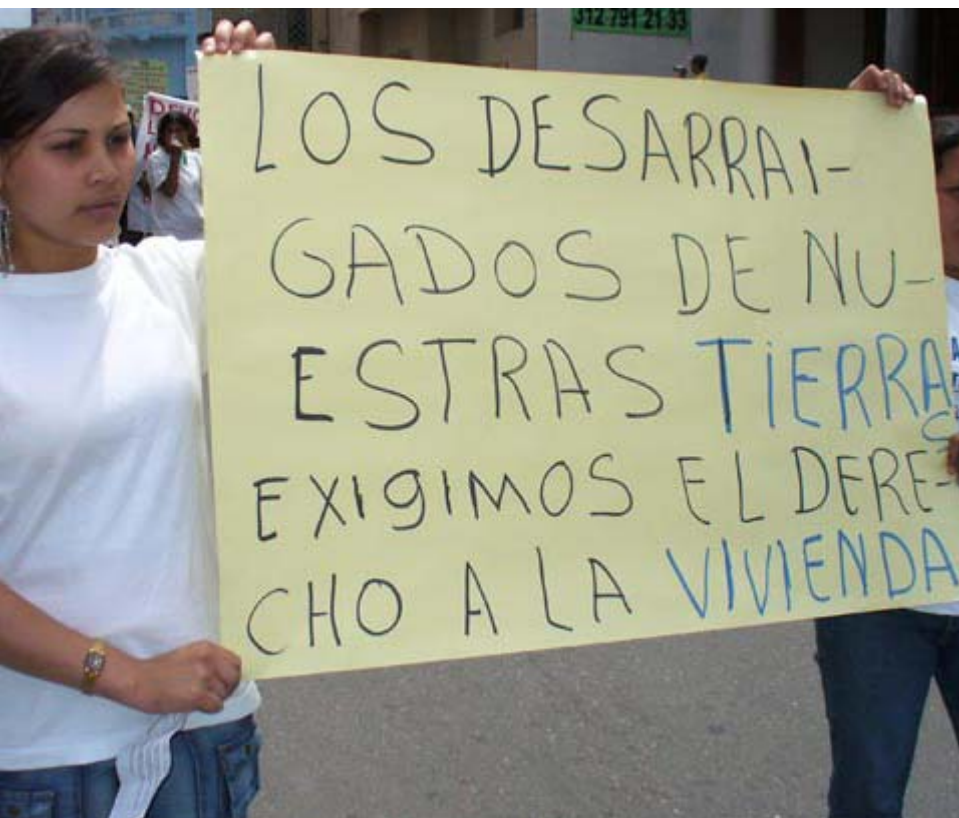 312 791 21 33
LOS DESARRAI-
GADOS DE NU-
ESTRAS TIERRAS
EXIgIMOS EL DERE-
CHO A LA VIVIENDA